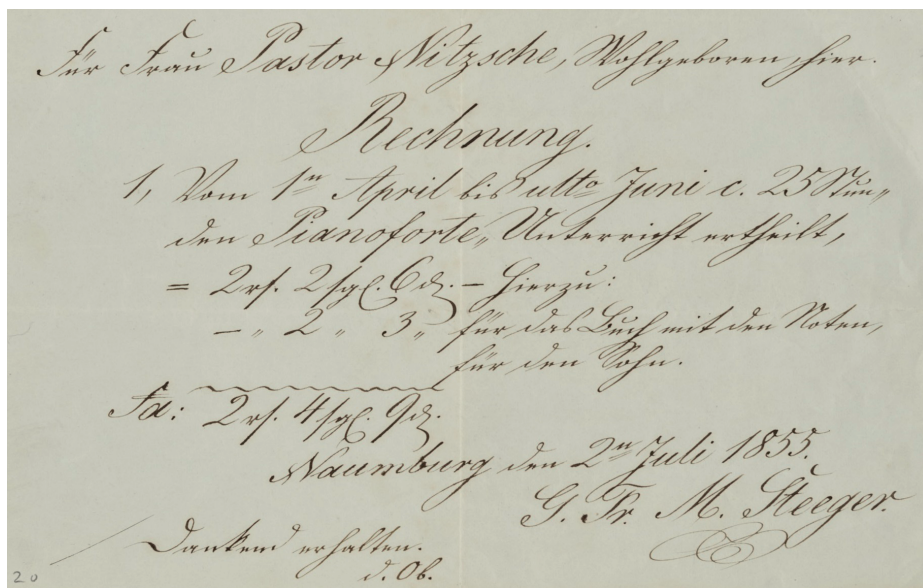 Für Frau Pastor Nitzsche, Wohlgeboren, hier.
Rechnung.
1, Vom 1n April bis ulto Juni c. 25 Stun„
den Pianoforte„Unterricht ertheilt,
= 2 rf. 2 sgl. 6 d. – hierzu:
– „ 2 „ 3 „ für das Buch mit den Noten,
für den Sohn.
Sa: 2 rf. 4 sgl. 9 d.
Naumburg den 2n Juli 1855.
G. Fr. M. Steeger.
Dankend erhalten.
d. Ob.
20